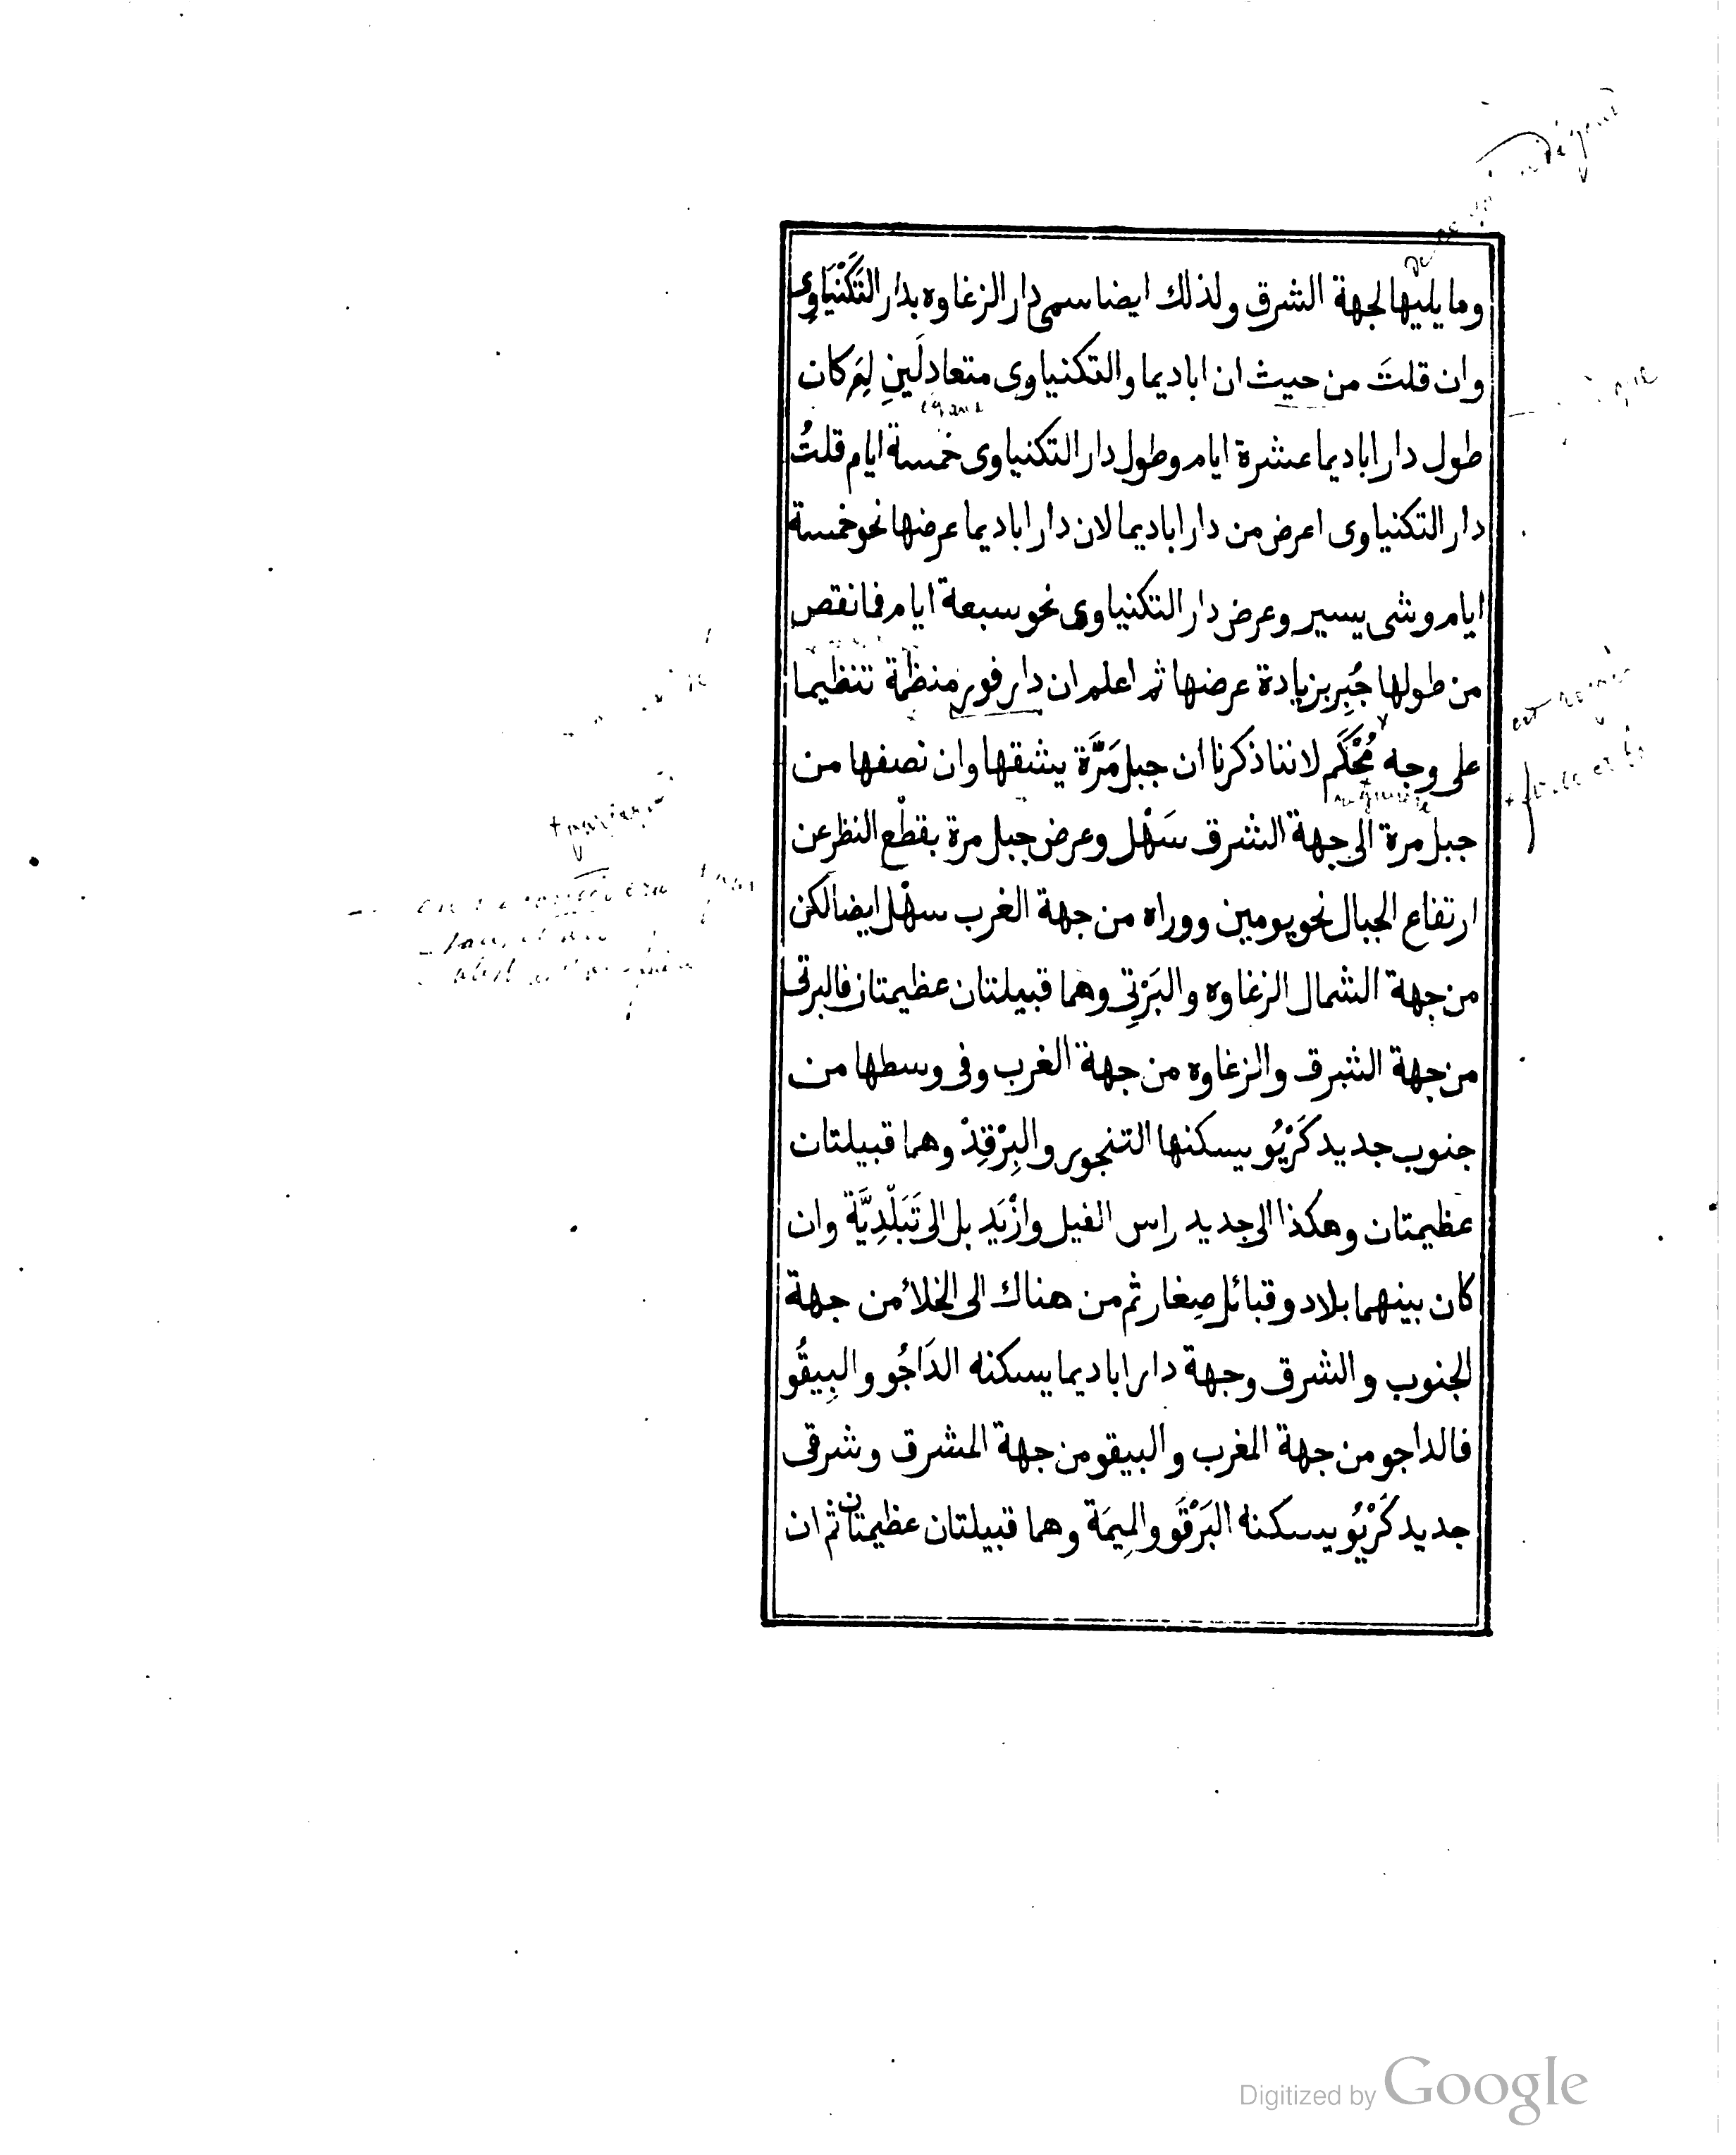 وما يليها لجهة الشرق ولذلك ايضا سمى دار الزغاوه بدار التَكَنْيَاوِى
وان قلتَ من حيث ان اباديما والتكنياوى متعادلَينِ لِمَ كان
طول دار اباديما عشرة ايام وطول دار التكنياوى خمسة ايام قلتُ
دار التكنياوى اعرض من دار اباديما لان دار اباديما عرضها نحو خمسة
ايام وشى يسير وعرض دار التكنياوى نحو سبعة ايام فما نقص
من طولها جُبِر بزيادة عرضها ثم اعلم ان دار فور منظمة تنظيما
على وجه مُحْكَم لاننا ذكرنا ان جبل مَرَّة يشقها وان نصفها من
جبل مرة الى جهة الشرق سَهْل وعرض جبل مرة بقطْع النظر عن
ارتفاع الجبال نحو يومين ووراه من جهة الغرب سهْل ايضا لكن
من جهة الشمال الزغاوه والبَرْتِى وهما قبيلتان عظيمتان فالبرتى
من جهة الشرق والزغاوه من جهة الغرب وفى وسطها من
جنوب جديد كَرْيُو يسكنها التنجور والبِرْقِدْ وهما قبيلتان
عظيمتان وهكذا الى جديد راس الفيل وازْيَد بل الى تَبَلْدِيَّة وان
كان بينهما بلاد وقبائل صِغار ثم من هناك الى الخلاْ من جهة
الجنوب والشرق وجهة دار اباديما يسكنه الدَاجُو والبِيقُو
فالداجو من جهة المغرب والبيقو من جهة المشرق وشرقى
جديد كَرْيُو يسكنه البَرْقَو والمِيمَة وهما قبيلتان عظيمتان ثم ان
Digitized by Google